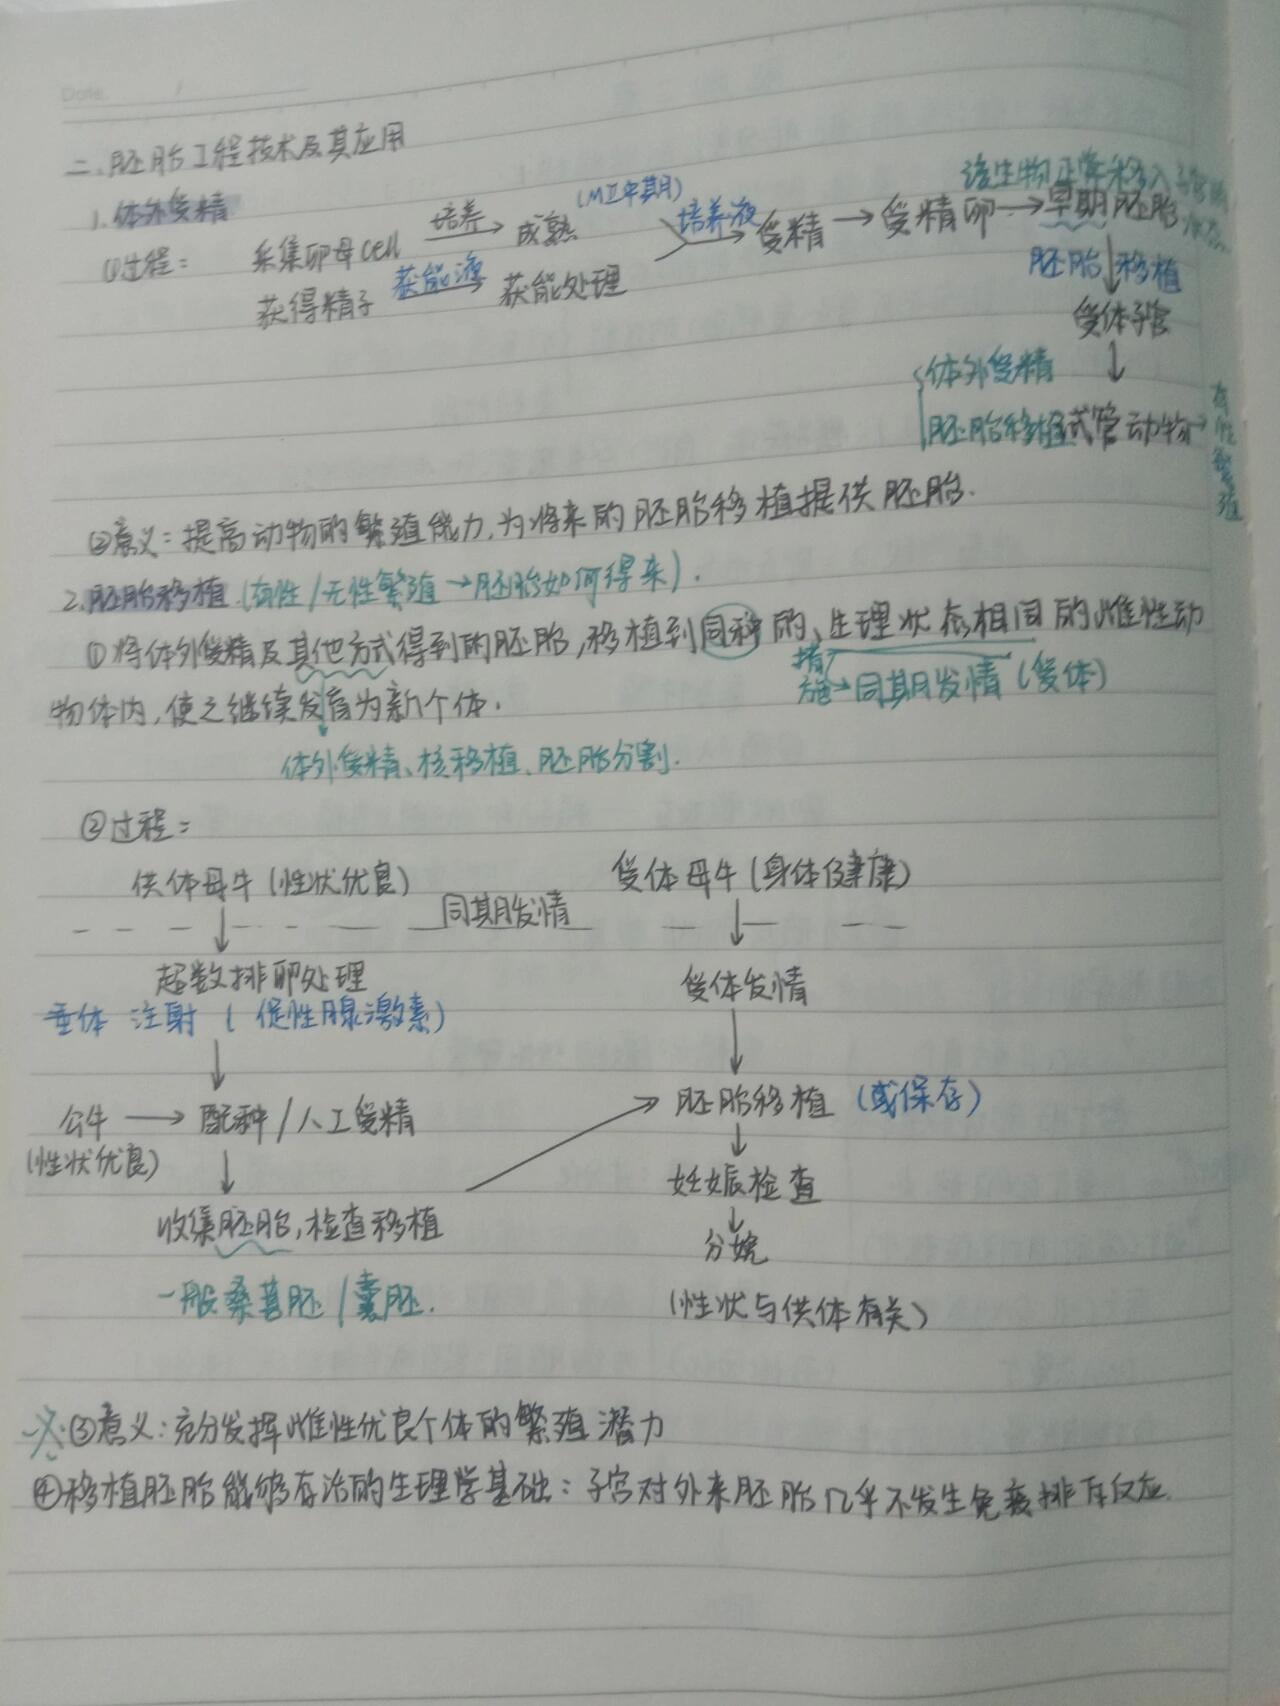 Date. /
二、胚胎工程技术及其应用
该生物正常移入子宫
1.体外受精
①过程: 采集卵母cell 培养→ 成熟 (MⅡ中期) 培养液→ 受精 → 受精卵 → 早期胚胎
获得精子 获能液→ 获能处理
胚胎移植
受体子宫
体外受精
胚胎移植 试管动物→ 有性繁殖
②意义:提高动物的繁殖能力,为将来的胚胎移植提供胚胎.
2.胚胎移植.(有性/无性繁殖→胚胎如何得来).
①将体外受精及其他方式得到的胚胎,移植到同种的、生理状态相同的雌性动
措施→同期发情(受体)
物体内,使之继续发育为新个体.
体外受精、核移植、胚胎分割.
②过程:
供体母牛(性状优良) 受体母牛(身体健康)
同期发情
超数排卵处理 受体发情
垂体 注射 (促性腺激素)
公牛 → 配种/人工受精 胚胎移植 (或保存)
(性状优良)
妊娠检查
收集胚胎,检查移植 分娩
一般桑葚胚/囊胚. (性状与供体有关)
③意义:充分发挥雌性优良个体的繁殖潜力
④移植胚胎能够存活的生理学基础:子宫对外来胚胎几乎不发生免疫排斥反应.